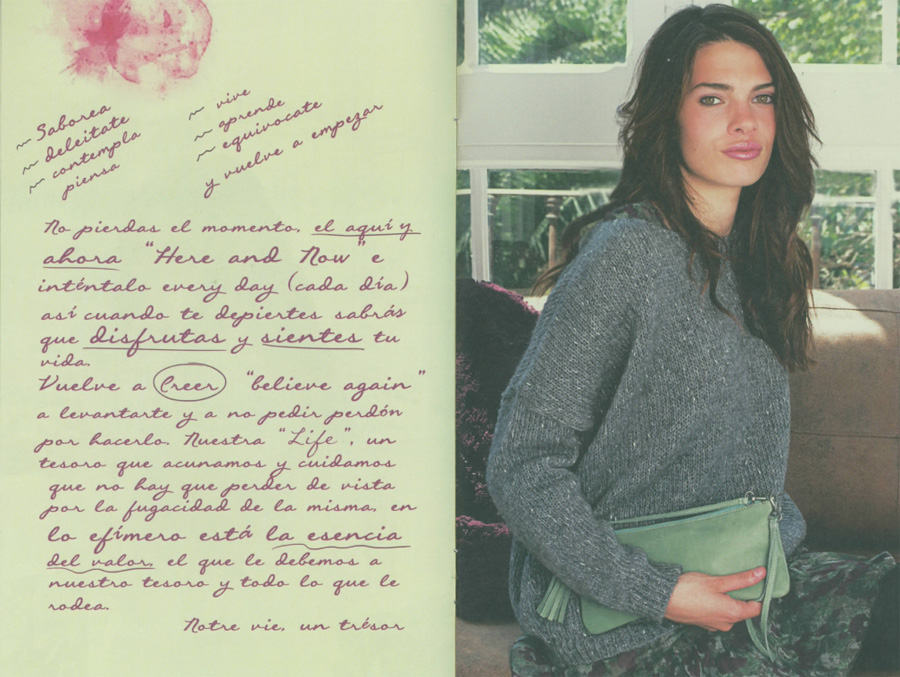 ~ Saborea
~ deleitate
~ contempla
piensa
~ vive
~ aprende
~ equivocate
y vuelve a empezar
No pierdas el momento, el aquí y
ahora "Here and Now" e
inténtalo every day (cada día)
así cuando te depiertes sabrás
que disfrutas y sientes tu
vida.
Vuelve a Creer "believe again"
a levantarte y a no pedir perdón
por hacerlo. Nuestra "Life", un
tesoro que acunamos y cuidamos
que no hay que perder de vista
por la fugacidad de la misma, en
lo efímero está la esencia
del valor, el que le debemos a
nuestro tesoro y todo lo que le
rodea.
Notre vie, un trésor